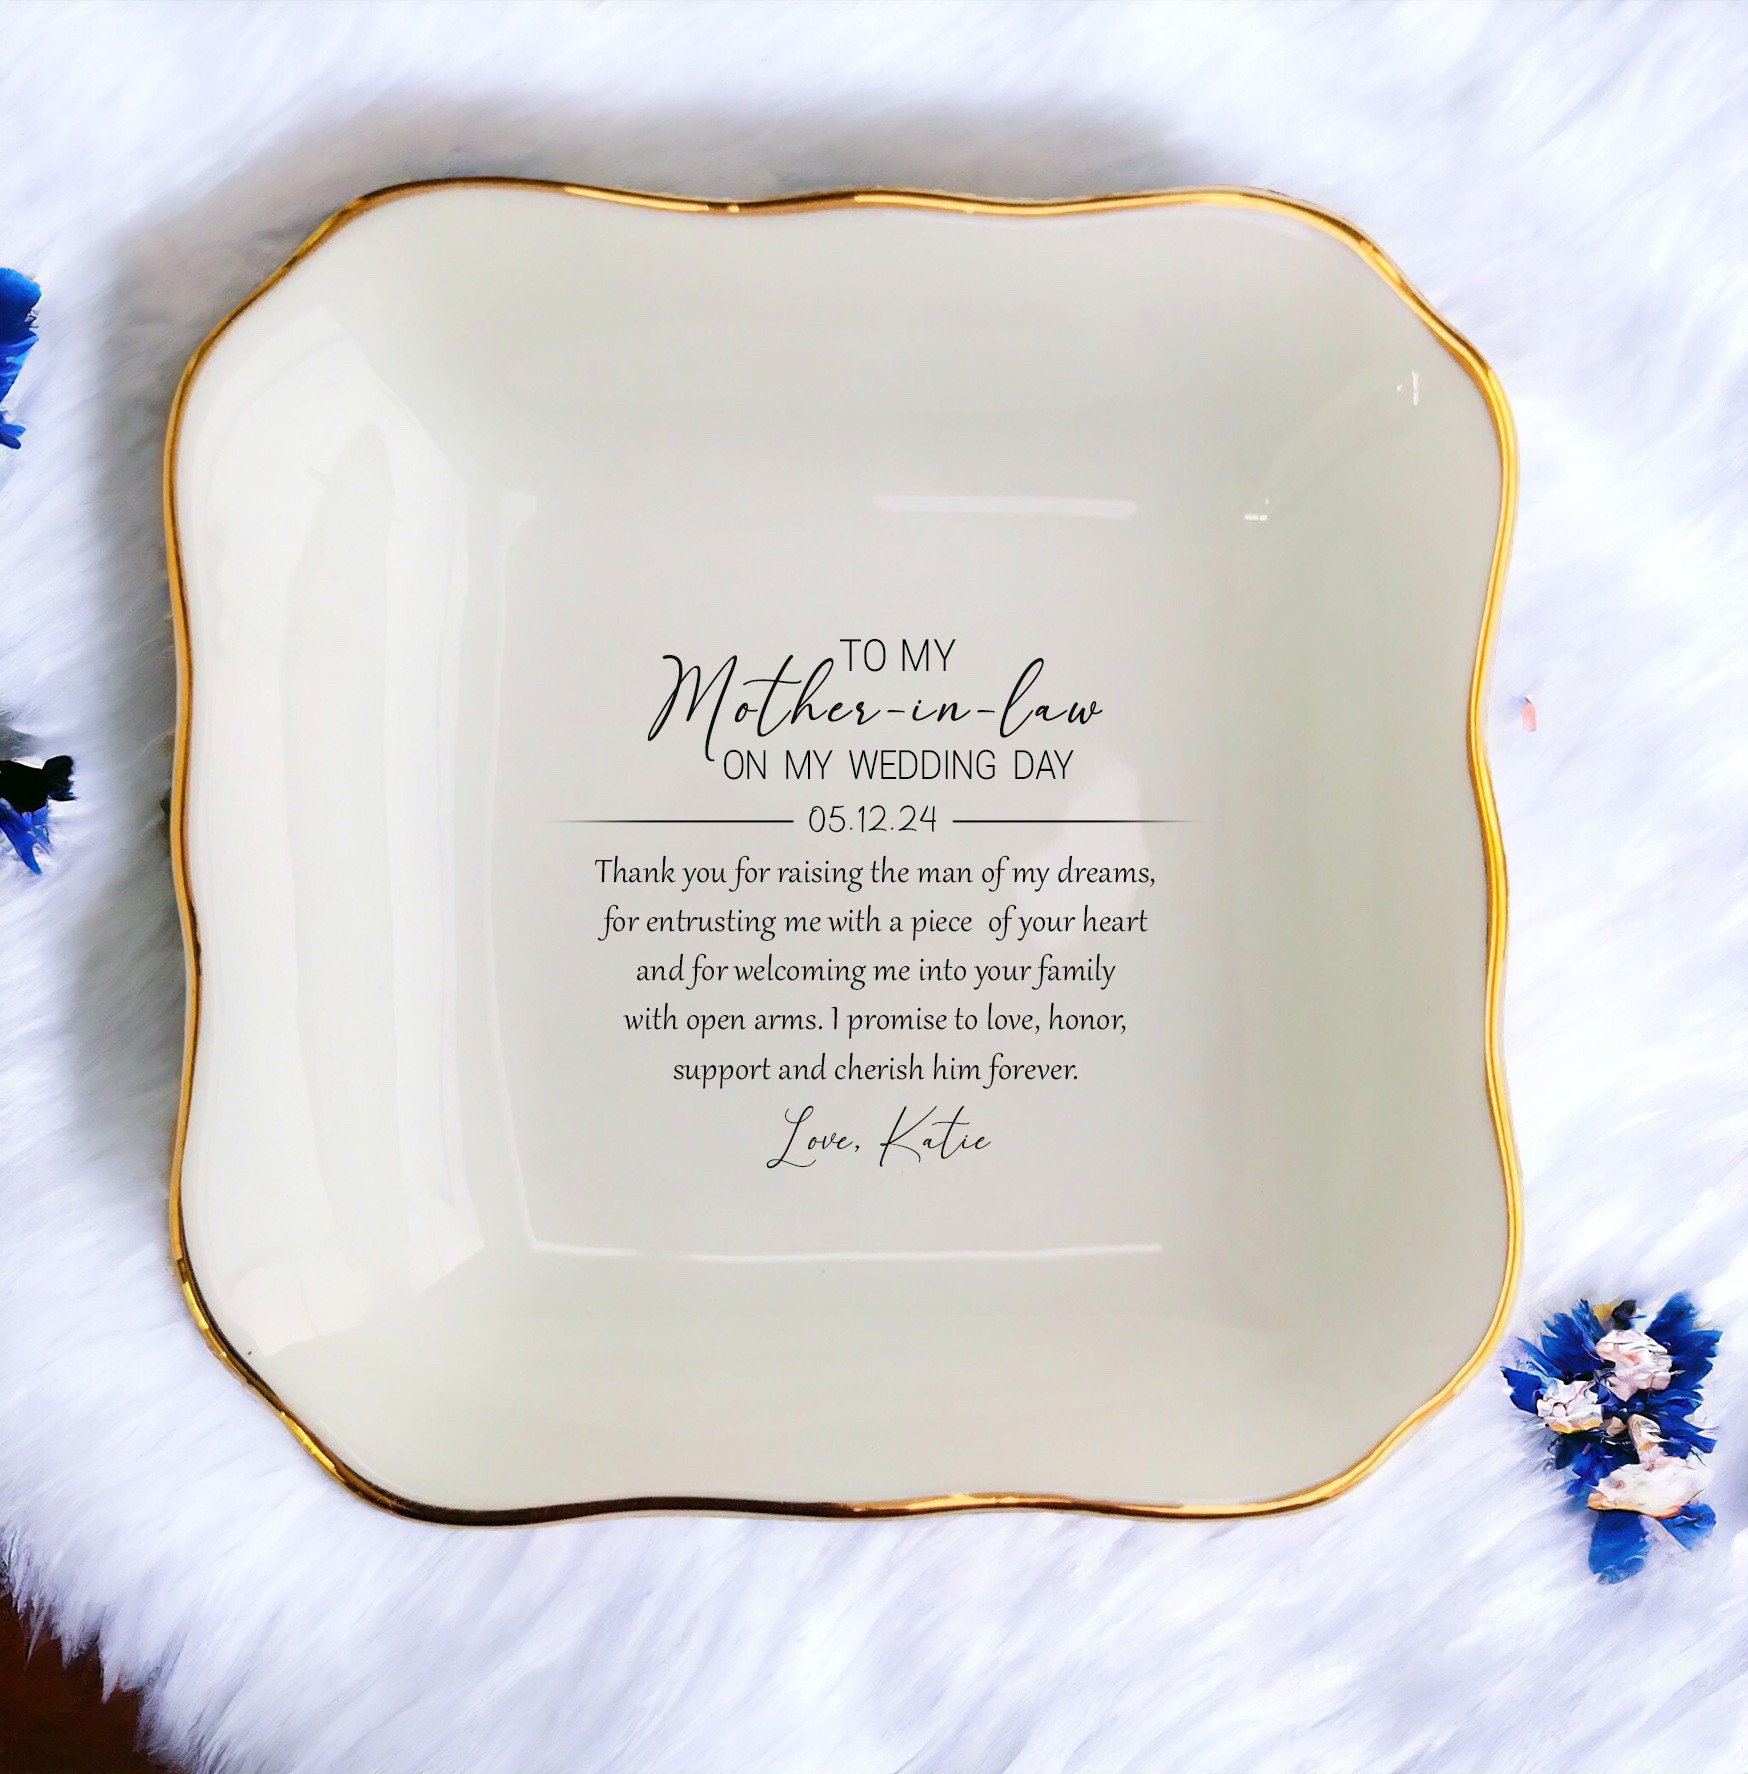 TO MY
Mother-in-law
ON MY WEDDING DAY
05.12.24
Thank you for raising the man of my dreams,
for entrusting me with a piece of your heart
and for welcoming me into your family
with open arms. I promise to love, honor,
support and cherish him forever.
Love, Katie